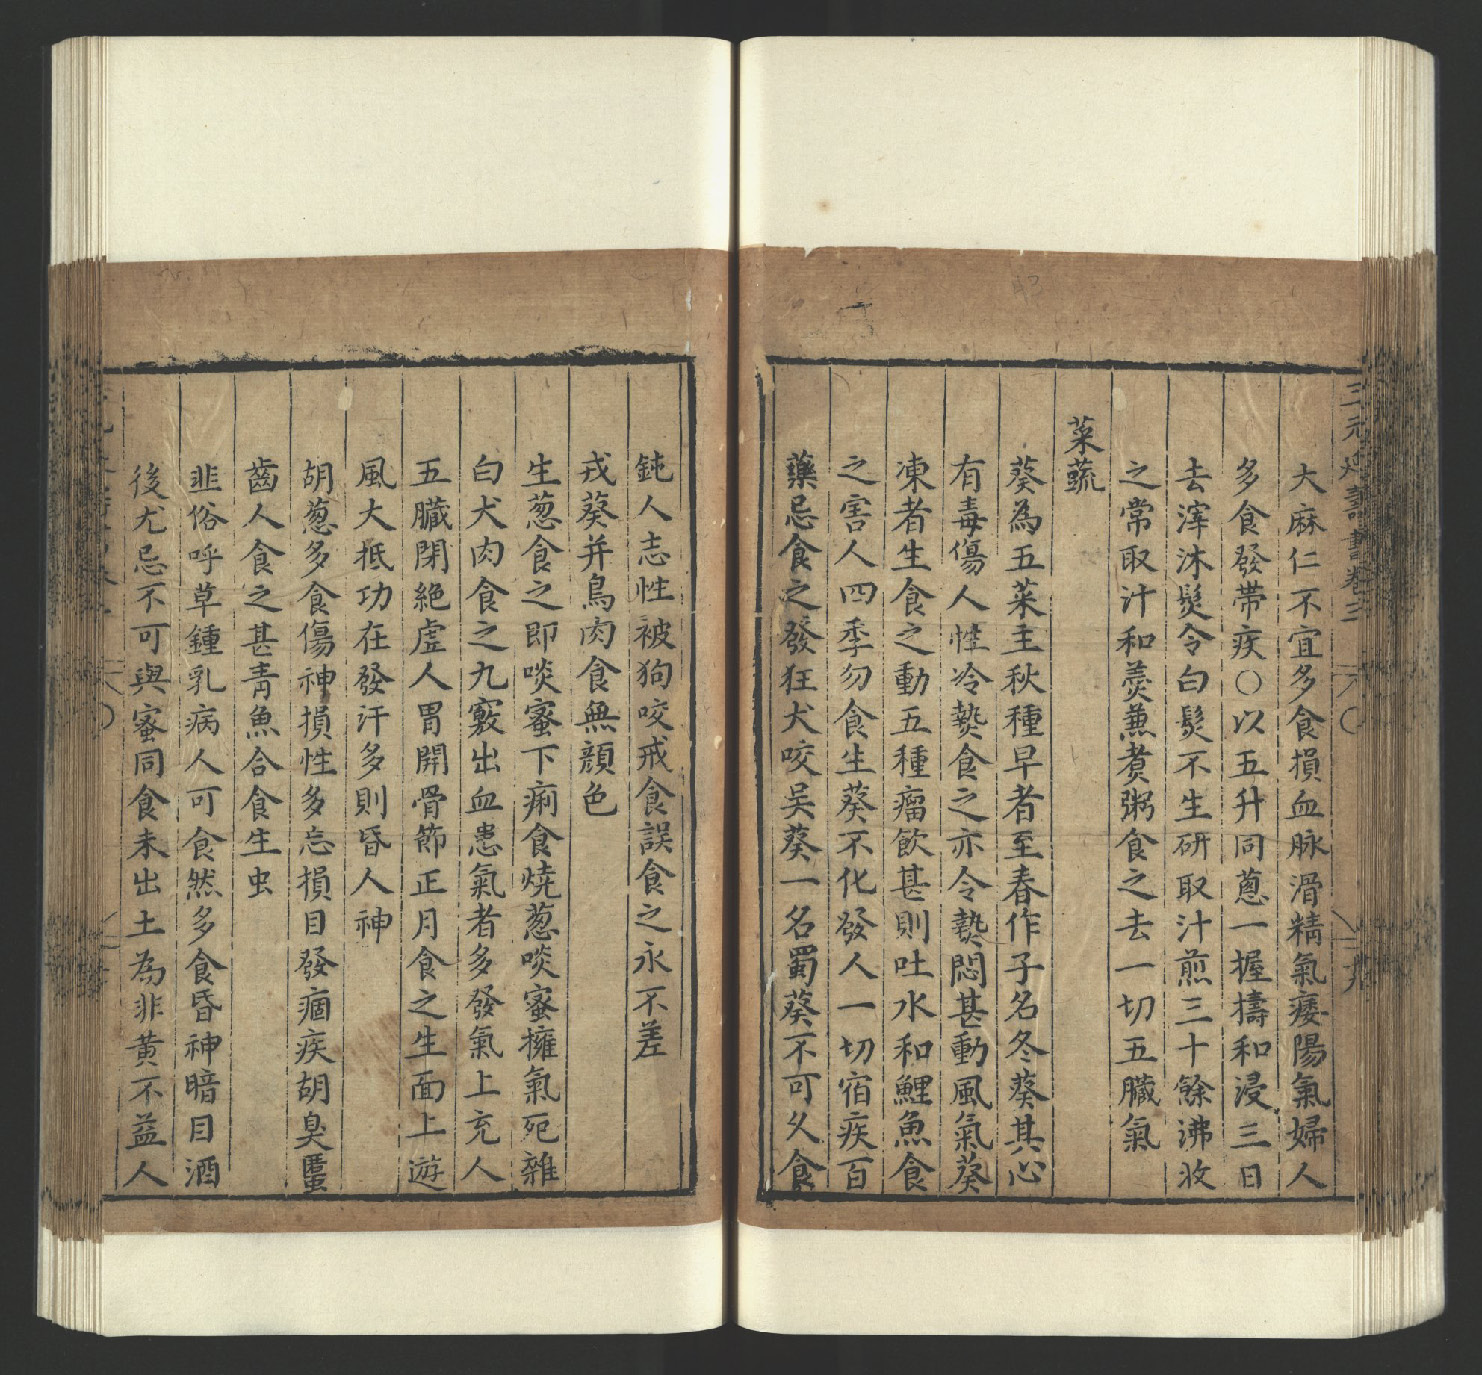 三元延壽書卷三
大麻仁不宜多食損血脉滑精氣痿陽氣婦人
多食發帶疾○以五升同蔥一握擣和浸三日
去滓沐髮令白髮不生研取汁煎三十餘沸收
之常取汁和羹兼煑粥食之去一切五臟氣
菜蔬
葵為五菜主秋種早者至春作子名冬葵其心
有毒傷人性冷熱食之亦令熱悶甚動風氣葵
凍者生食之動五種瘤飲甚則吐水和鯉魚食
之害人四季勿食生葵不化發人一切宿疾百
藥忌食之發狂犬咬吴葵一名蜀葵不可久食
鈍人志性被狗咬戒食誤食之永不差
戎葵并鳥肉食無顔色
生葱食之即啖蜜下痢食燒葱啖蜜擁氣死雜
白犬肉食之九竅出血患氣者多發氣上充人
五臟閉絶虗人胃開骨節正月食之生面上遊
風大抵功在發汗多則昏人神
胡葱多食傷神損性多忘損目發痼疾胡臭䘌
齒人食之甚青魚合食生虫
韭俗呼草鍾乳病人可食然多食昏神暗目酒
後尤忌不可與蜜同食未出土為韭黄不益人